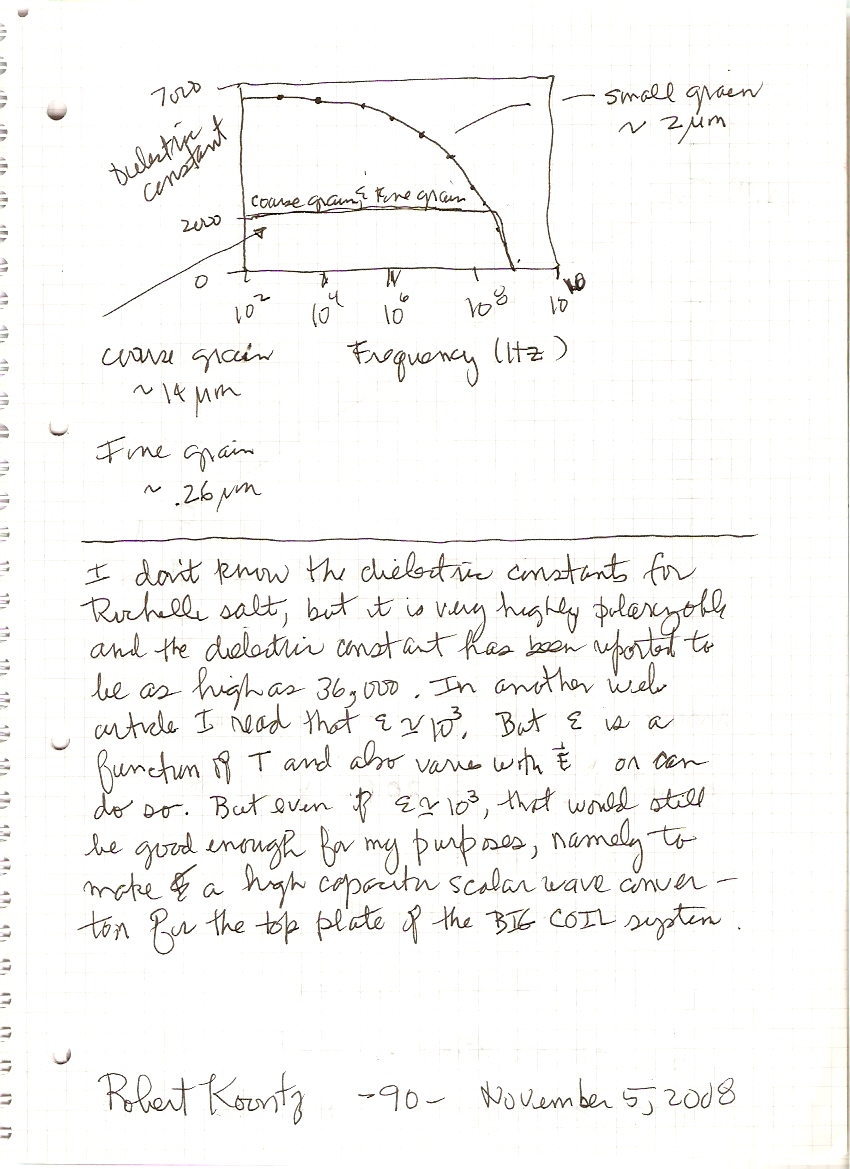 7000
small grain
~ 2 μm
Dielectric
constant
coarse grain & Fine grain
2000
0
10² 10⁴ 10⁶ 10⁸ 10¹⁰
coarse grain Frequency (Hz)
~ 14 μm
Fine grain
~ .26 μm
I don't know the dielectric constants for
Rochelle salt, but it is very highly polarizable
and the dielectric constant has been reported to
be as high as 36,000. In another web
article I read that ε ≃ 10³. But ε is a
function of T and also varies with E⃗ or can
do so. But even if ε ≃ 10³, that would still
be good enough for my purposes, namely to
make a high capacitor scalar wave conver-
ton for the top plate of the BIG COIL system.
Robert Koontz -90- November 5, 2008